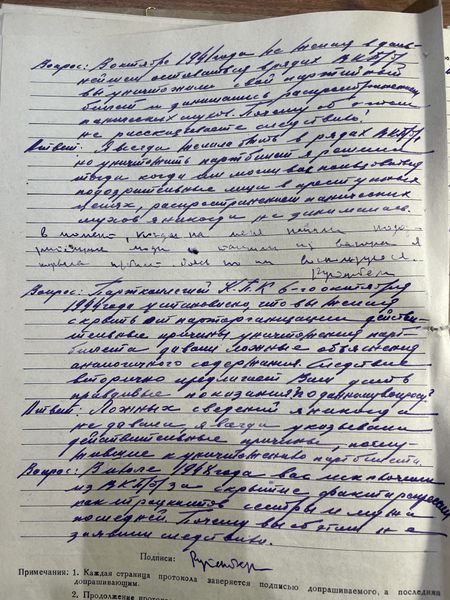 Вопрос: В октябре 1941 года не желая в даль-
нейшем оставаться в рядах ВКП/б/
вы уничтожили свой партийный
билет и занимались распространением
панических слухов. Почему об этом
не рассказываете следствию?
Ответ: Я всегда желала быть в рядах ВКП/б/,
но уничтожить партбилет я решила
тогда когда им могли воспользоваться
подозрительные лица в преступных
целях, распространением панических
слухов я никогда не занималась.
В момент, когда на меня напали подо-
зрительные люди
Вопрос: Партколлегией К.П.К 6-го октября
1944 года установлено, что вы желая
скрыть от парторганизации действи-
тельные причины уничтожения парт-
билета давали ложные объяснения
аналогичного содержания. Следствие
вторично предлагает Вам дать
правдивые показания по данному вопросу?
Ответ: Ложных сведений я никогда
не давала, я всегда указывала
действительные причины, послу-
жившие к уничтожению партбилета.
Вопрос: В июле 1948 года вас исключили
из ВКП/б/ за скрытие факта репрессии
как троцкистов сестры и мужа
последней. Почему вы об этом не
заявили следствию.
Подписи:
Примечания: 1. Каждая страница протокола заверяется подписью допрашиваемого, а последняя
допрашивающим.
2. Продолжение